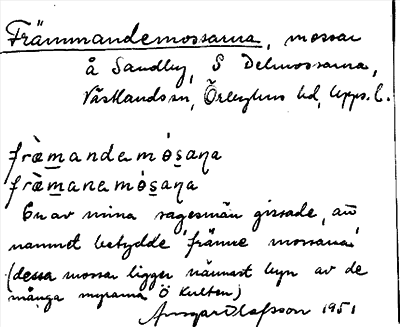 Främmandemossarna, mossar
å Sandby, S Delmossarna,
Västlands sn, Örbyhus hd, Upps. l.
fræ̀mandemósaɳa
fræ̀manemósaɳa
En av mina sagesmän gissade, att
namnet betydde "främre mossarna"
(dessa mossar ligger närmast byn av de
många myrarna Ö Kulten)
Olafsson 1951